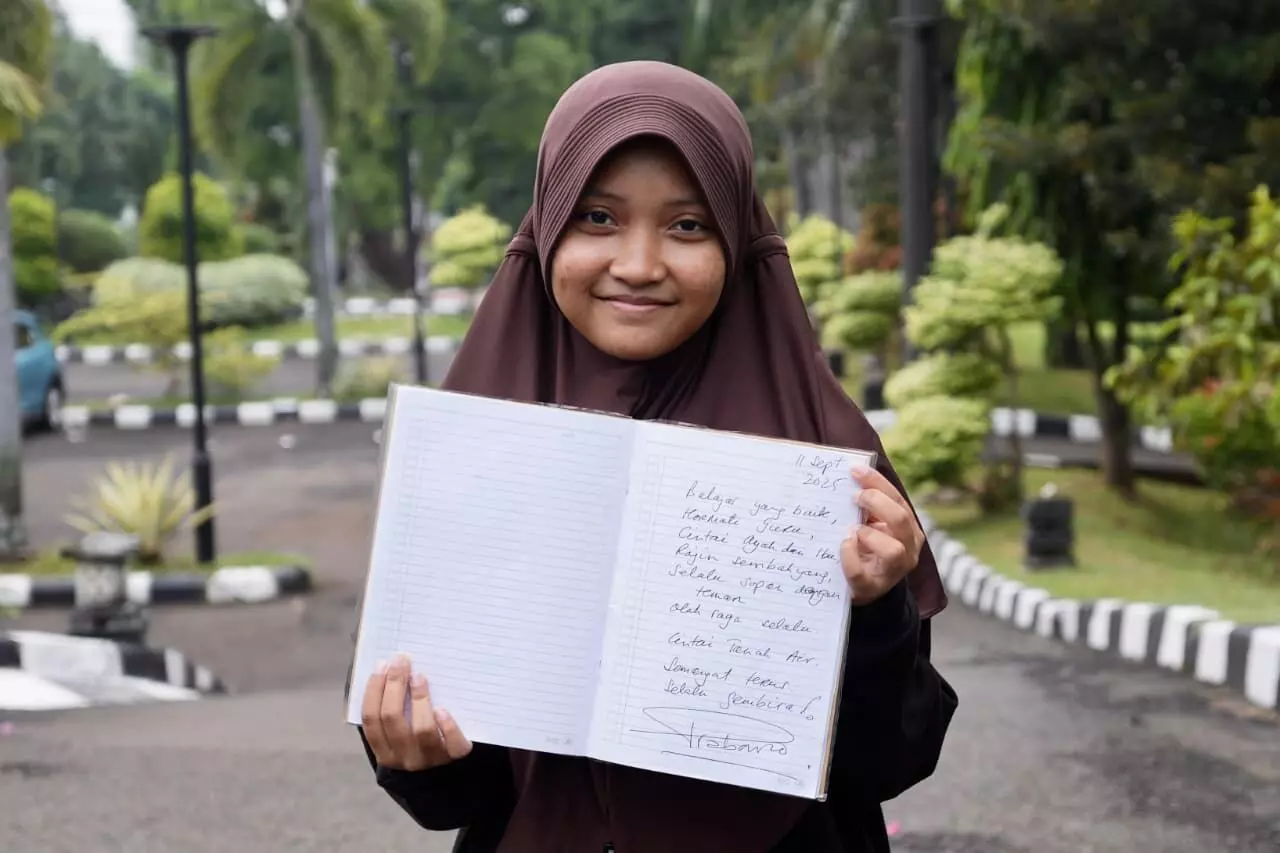 11 Sept
2025
Belajar yang baik,
Hormati Guru,
Cintai Ayah dan Ibu
Rajin sembahyang,
Selalu sopan dengan
teman
Olah raga selalu.
Cintai Tanah Air.
Semangat terus
Selalu Gembira!
Prabowo